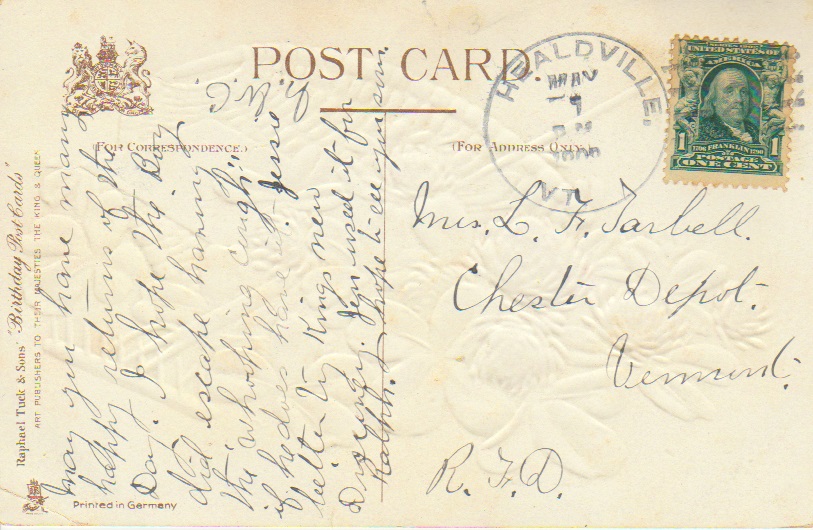 POST CARD.
(FOR CORRESPONDENCE.)
(FOR ADDRESS ONLY.)
HEALDVILLE,
MAY
VT.
SERIES 1902
UNITED STATES OF
AMERICA
1706 FRANKLIN 1790
1 POSTAGE 1
ONE CENT
Mrs. L. F. Tarbell.
Chester Depot.
Vermont.
R. F. D.
May you have many
happy returns of the
Day. I hope the Boy
did escape having
the "whooping cough"
if he does have it Jessie
better try Kings new
Discovery. Jem used it for
Ralph. I hope to see you soon.
Raphael Tuck & Sons' "Birthday Post Cards"
ART PUBLISHERS TO THEIR MAJESTIES THE KING & QUEEN
Printed in Germany